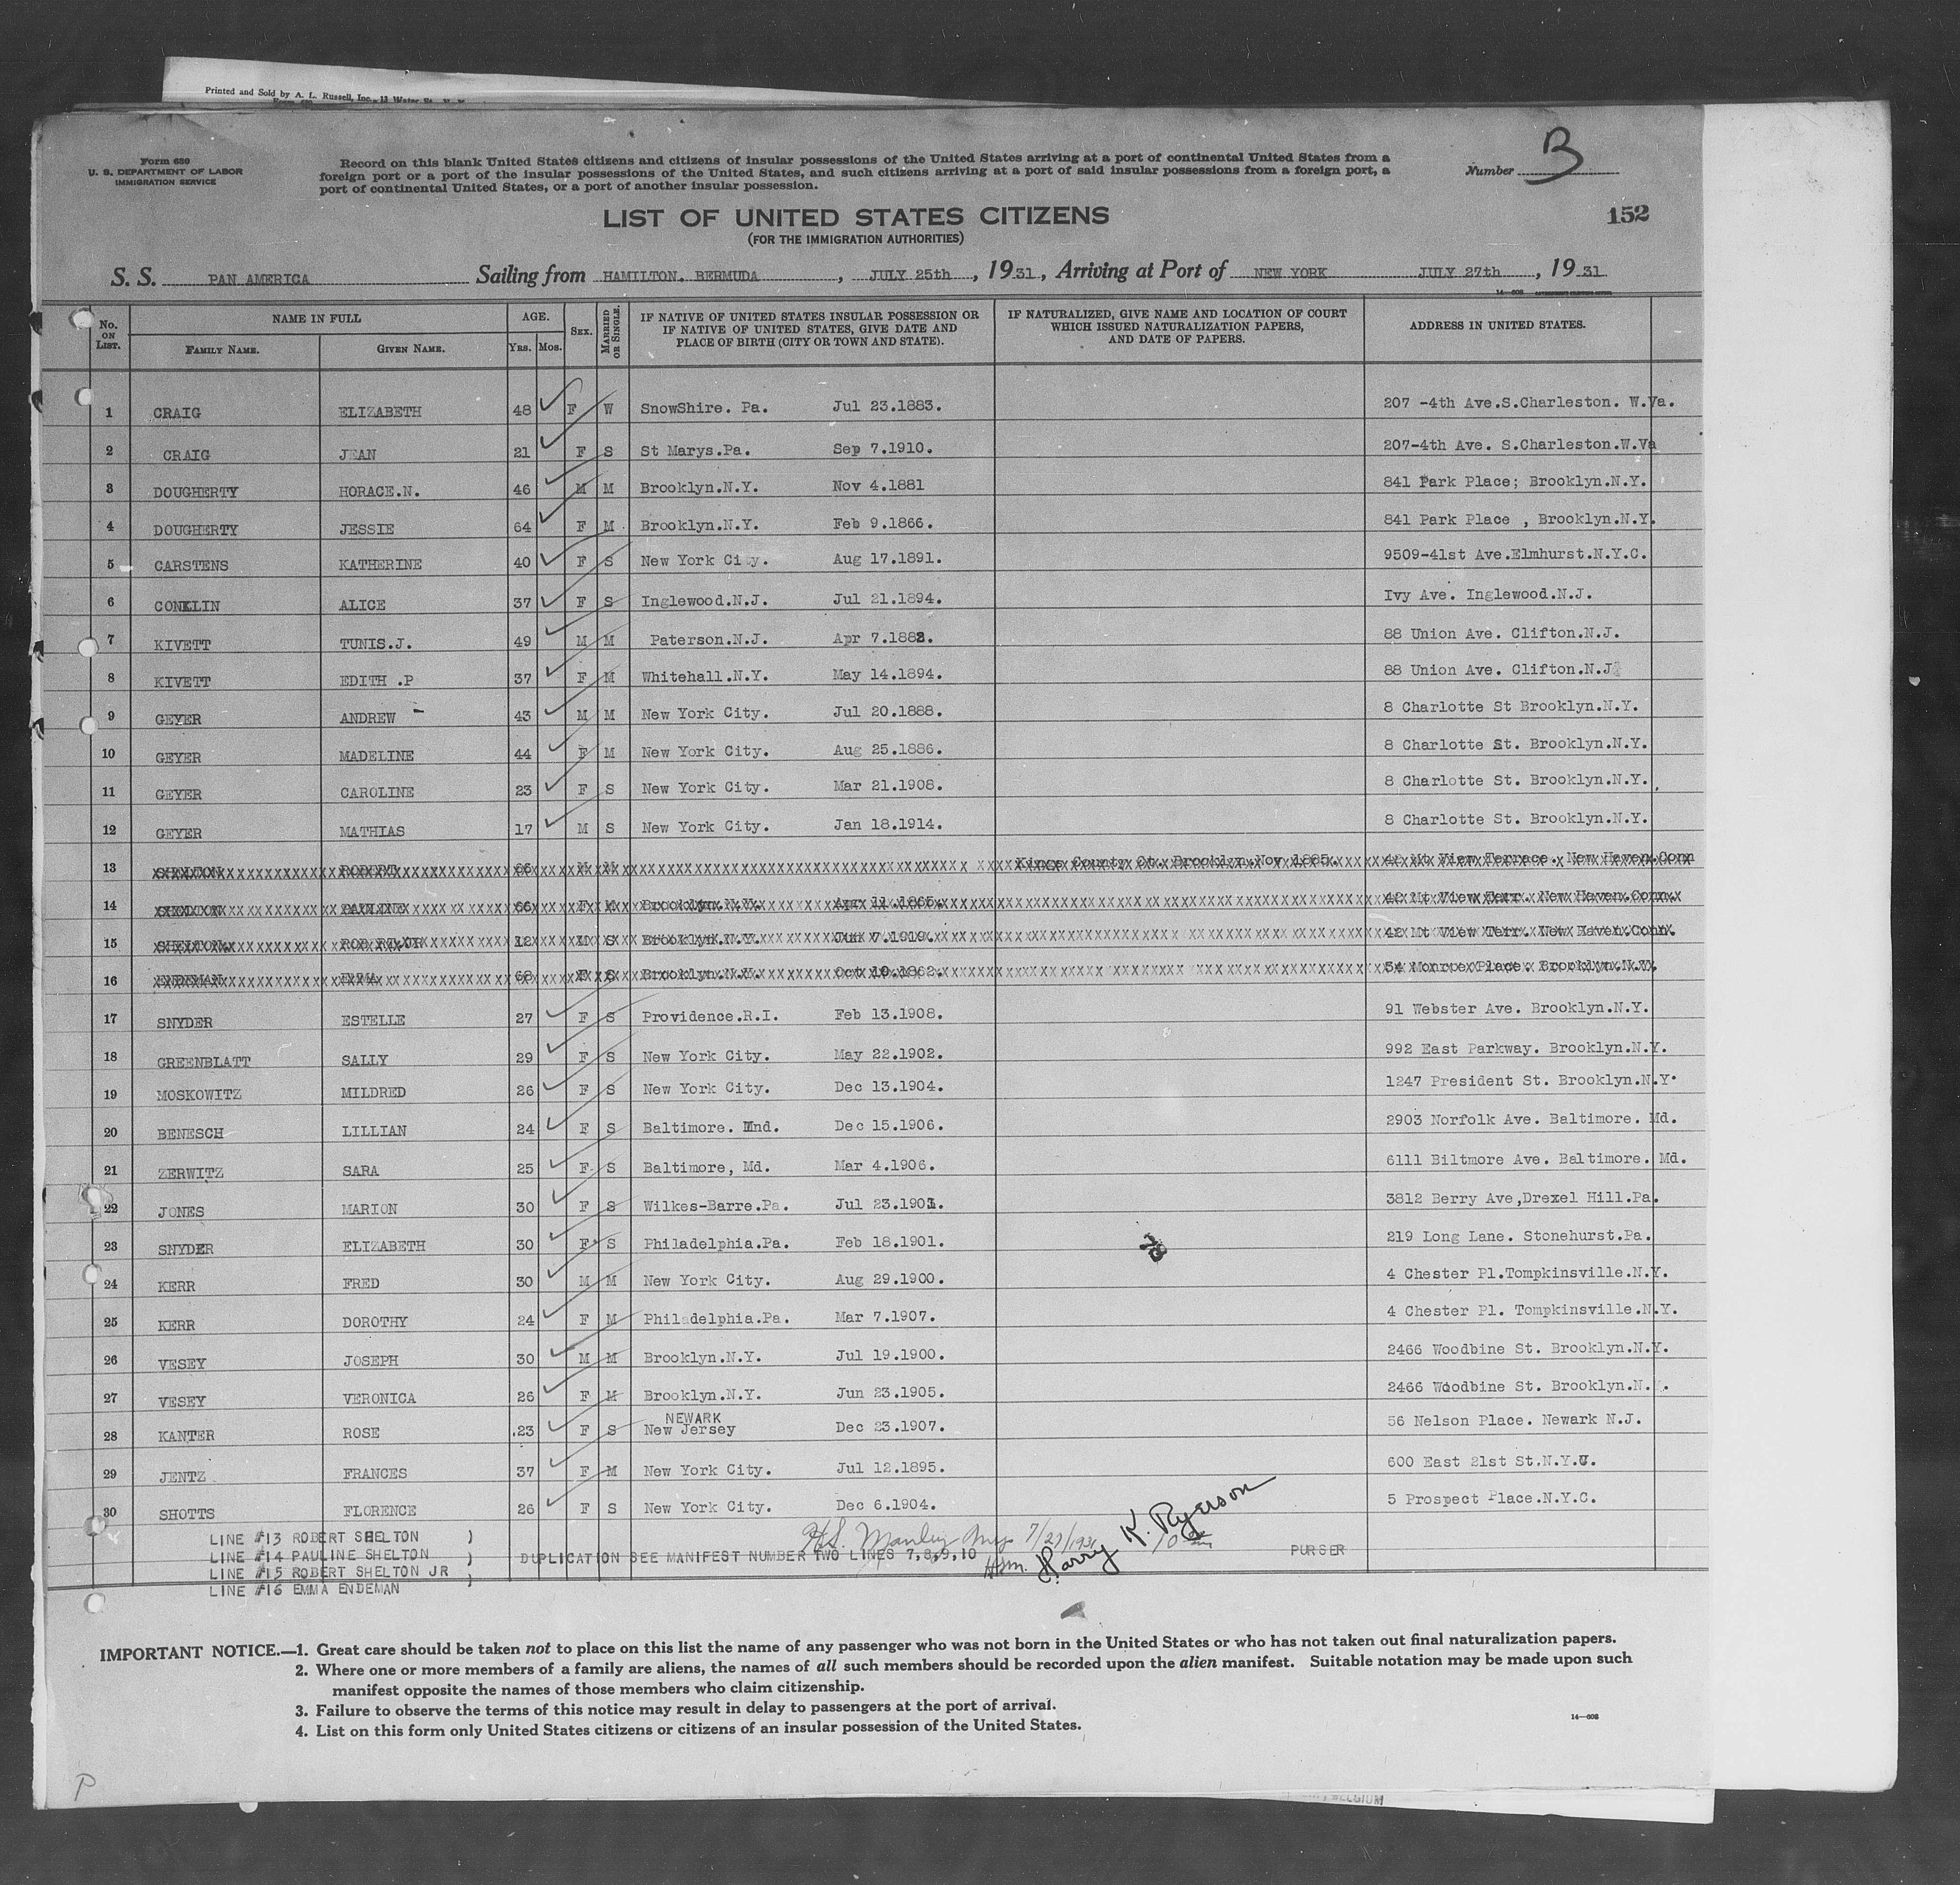 Printed and Sold by A. L. Russell, Inc., 13 Water St. N. Y.
Form 630
U. S. DEPARTMENT OF LABOR
IMMIGRATION SERVICE
Record on this blank United States citizens and citizens of insular possessions of the United States arriving at a port of continental United States from a
foreign port or a port of the insular possessions of the United States, and such citizens arriving at a port of said insular possessions from a foreign port, a
port of continental United States, or a port of another insular possession.
Number B
152
LIST OF UNITED STATES CITIZENS
(FOR THE IMMIGRATION AUTHORITIES)
S. S. PAN AMERICA Sailing from HAMILTON. BERMUDA, JULY 25th, 1931, Arriving at Port of NEW YORK JULY 27th, 1931
14—608
No. ON LIST. NAME IN FULL FAMILY NAME. GIVEN NAME. AGE. YRS. MOS. SEX. MARRIED OR SINGLE. IF NATIVE OF UNITED STATES INSULAR POSSESSION OR IF NATIVE OF UNITED STATES, GIVE DATE AND PLACE OF BIRTH (CITY OR TOWN AND STATE). IF NATURALIZED, GIVE NAME AND LOCATION OF COURT WHICH ISSUED NATURALIZATION PAPERS, AND DATE OF PAPERS. ADDRESS IN UNITED STATES.
1 CRAIG ELIZABETH 48 F W SnowShire. Pa. Jul 23.1883. 207 -4th Ave.S.Charleston. W.Va.
2 CRAIG JEAN 21 F S St Marys.Pa. Sep 7.1910. 207-4th Ave. S.Charleston.W.Va
3 DOUGHERTY HORACE.N. 46 M M Brooklyn.N.Y. Nov 4.1881 841 Park Place; Brooklyn.N.Y.
4 DOUGHERTY JESSIE 64 F M Brooklyn.N.Y. Feb 9.1866. 841 Park Place , Brooklyn.N.Y.
5 CARSTENS KATHERINE 40 F S New York City. Aug 17.1891. 9509-41st Ave.Elmhurst.N.Y.C.
6 CONKLIN ALICE 37 F S Inglewood.N.J. Jul 21.1894. Ivy Ave. Inglewood.N.J.
7 KIVETT TUNIS.J. 49 M M Paterson.N.J. Apr 7.1882. 88 Union Ave. Clifton.N.J.
8 KIVETT EDITH .P 37 F M Whitehall.N.Y. May 14.1894. 88 Union Ave. Clifton.N.J.
9 GEYER ANDREW - 43 M M New York City. Jul 20.1888. 8 Charlotte St Brooklyn.N.Y.
10 GEYER MADELINE 44 F M New York City. Aug 25.1886. 8 Charlotte St. Brooklyn.N.Y.
11 GEYER CAROLINE 23 F S New York City. Mar 21.1908. 8 Charlotte St. Brooklyn.N.Y.
12 GEYER MATHIAS 17 M S New York City. Jan 18.1914. 8 Charlotte St. Brooklyn.N.Y.
13 SHELTON ROBERT 66 M M Kings County Ct. Brooklyn.Nov 1885. 42 Mt View Terrace. New Haven.Conn
14 SHELTON PAULINE 66 F M Brooklyn.N.Y. Apr 11.1865. 42 Mt View Terr. New Haven.Conn.
15 SHELTON. ROBERT.JR 12 M S Brooklyn.N.Y. Jun 7.1919. 42 Mt View Terr. New Haven.Conn.
16 ENDEMAN EMMA 68 F S Brooklyn.N.Y. Oct 10.1862. 34 Monroe Place. Brooklyn.N.Y.
17 SNYDER ESTELLE 27 F S Providence.R.I. Feb 13.1908. 91 Webster Ave. Brooklyn.N.Y.
18 GREENBLATT SALLY 29 F S New York City. May 22.1902. 992 East Parkway. Brooklyn.N.Y.
19 MOSKOWITZ MILDRED 26 F S New York City. Dec 13.1904. 1247 President St. Brooklyn.N.Y.
20 BENESCH LILLIAN 24 F S Baltimore. Mnd. Dec 15.1906. 2903 Norfolk Ave. Baltimore. Md.
21 ZERWITZ SARA 25 F S Baltimore, Md. Mar 4.1906. 6111 Biltmore Ave. Baltimore. Md.
22 JONES MARION 30 F S Wilkes-Barre.Pa. Jul 23.1901. 3812 Berry Ave,Drexel Hill.Pa.
23 SNYDER ELIZABETH 30 F S Philadelphia.Pa. Feb 18.1901. 219 Long Lane. Stonehurst.Pa.
24 KERR FRED 30 M M New York City. Aug 29.1900. 4 Chester Pl.Tompkinsville.N.Y.
25 KERR DOROTHY 24 F M Philadelphia.Pa. Mar 7.1907. 4 Chester Pl. Tompkinsville.N.Y.
26 VESEY JOSEPH 30 M M Brooklyn.N.Y. Jul 19.1900. 2466 Woodbine St. Brooklyn.N.Y.
27 VESEY VERONICA 26 F M Brooklyn.N.Y. Jun 23.1905. 2466 Woodbine St. Brooklyn.N.Y.
28 KANTER ROSE 23 F S NEWARK New Jersey Dec 23.1907. 56 Nelson Place. Newark N.J.
29 JENTZ FRANCES 37 F M New York City. Jul 12.1895. 600 East 21st St.N.Y.C.
30 SHOTTS FLORENCE 26 F S New York City. Dec 6.1904. 5 Prospect Place.N.Y.C.
LINE #13 ROBERT SHELTON )
LINE #14 PAULINE SHELTON )
LINE #15 ROBERT SHELTON JR )
LINE #16 EMMA ENDEMAN )
DUPLICATION SEE MANIFEST NUMBER TWO LINES 7,8,9,10
7/27/1931
Harry K. Ryerson
PURSER
IMPORTANT NOTICE.—1. Great care should be taken not to place on this list the name of any passenger who was not born in the United States or who has not taken out final naturalization papers.
2. Where one or more members of a family are aliens, the names of all such members should be recorded upon the alien manifest. Suitable notation may be made upon such
manifest opposite the names of those members who claim citizenship.
3. Failure to observe the terms of this notice may result in delay to passengers at the port of arrival.
4. List on this form only United States citizens or citizens of an insular possession of the United States.
14—608
P
BELGIUM